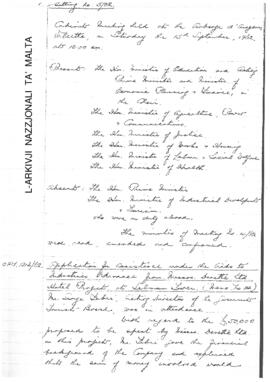 Meeting No. 5/62
Cabinet Meeting held at the Auberge d'Aragon,
Valletta, on Saturday the 15th September, 1962,
at 10.00 am.
Present: The Hon. Minister of Education and Acting
Prime Minister and Minister of
Economic Planning & Finance, in
the Chair.
The Hon. Minister of Agriculture, Power
& Communications.
The Hon. Minister of Justice
The Hon. Minister of Works & Housing
The Hon. Minister of Labour & Social Welfare
The Hon. Minister of Health
Absent: The Hon. Prime Minister
The Hon. Minister of Industrial Development
& Tourism.
who were on duty abroad.
The minutes of Meeting No 4/62
were read, amended and confirmed.
Application for Assistance under the Aids to
Industries Ordinance from Messrs.
Hotel Project, at
Mr. Acting Director of the Government
Tourist Board, was in attendance.
With regard to the £50,000
proposed to be spent by Messrs.
in this project, Mr. gave the financial
background of the Company and explained
that the sum of money involved would
L-ARKIVJI NAZZJONALI TA' MALTA